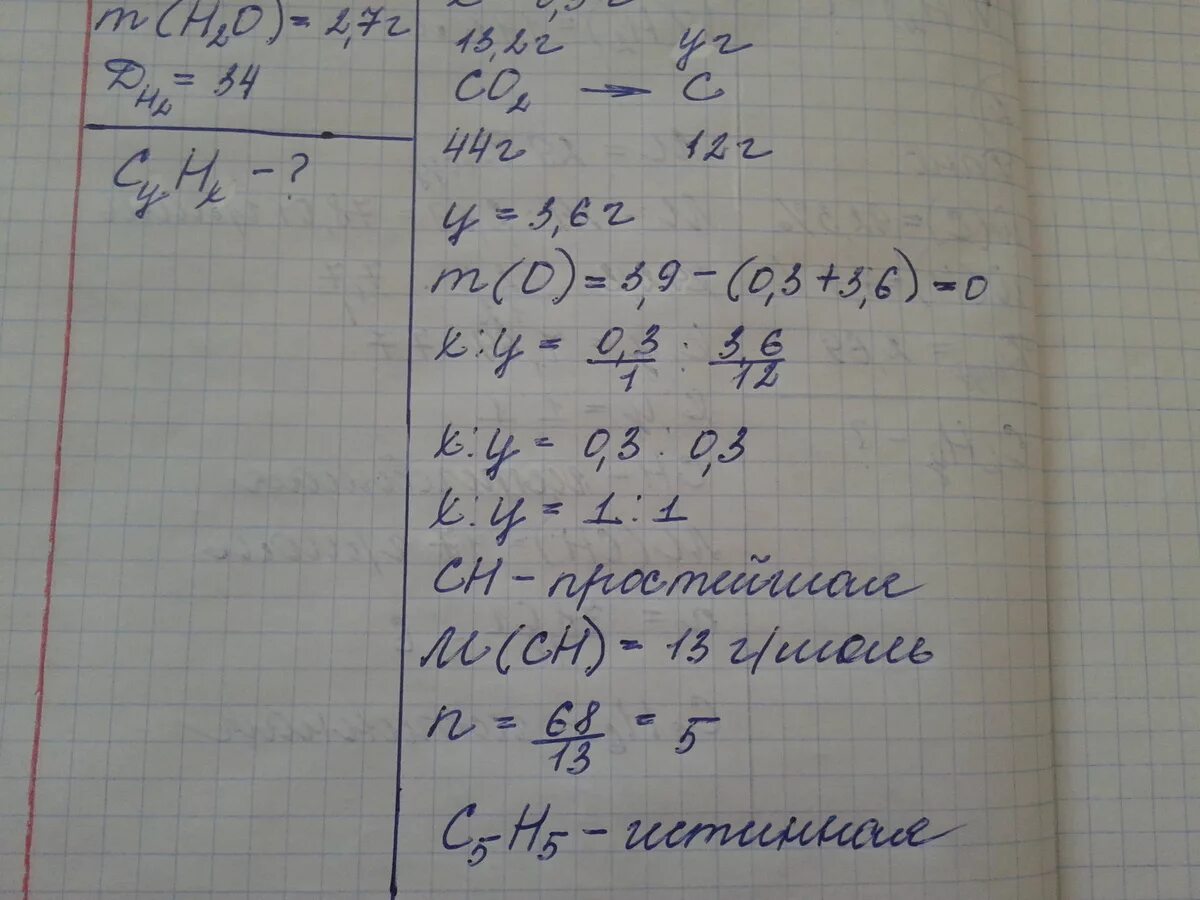 m(H₂O) = 2,7г
Д_H₂ = 34
CyHx - ?
13,2г yг
CO₂ → C
44г 12г
y = 3,6г
m(O) = 3,9 - (0,3 + 3,6) = 0
x : y = 0,3/1 : 3,6/12
x : y = 0,3 : 0,3
x : y = 1 : 1
CH - простейшая
M(CH) = 13 г/моль
n = 68/13 = 5
C₅H₅ - истинная